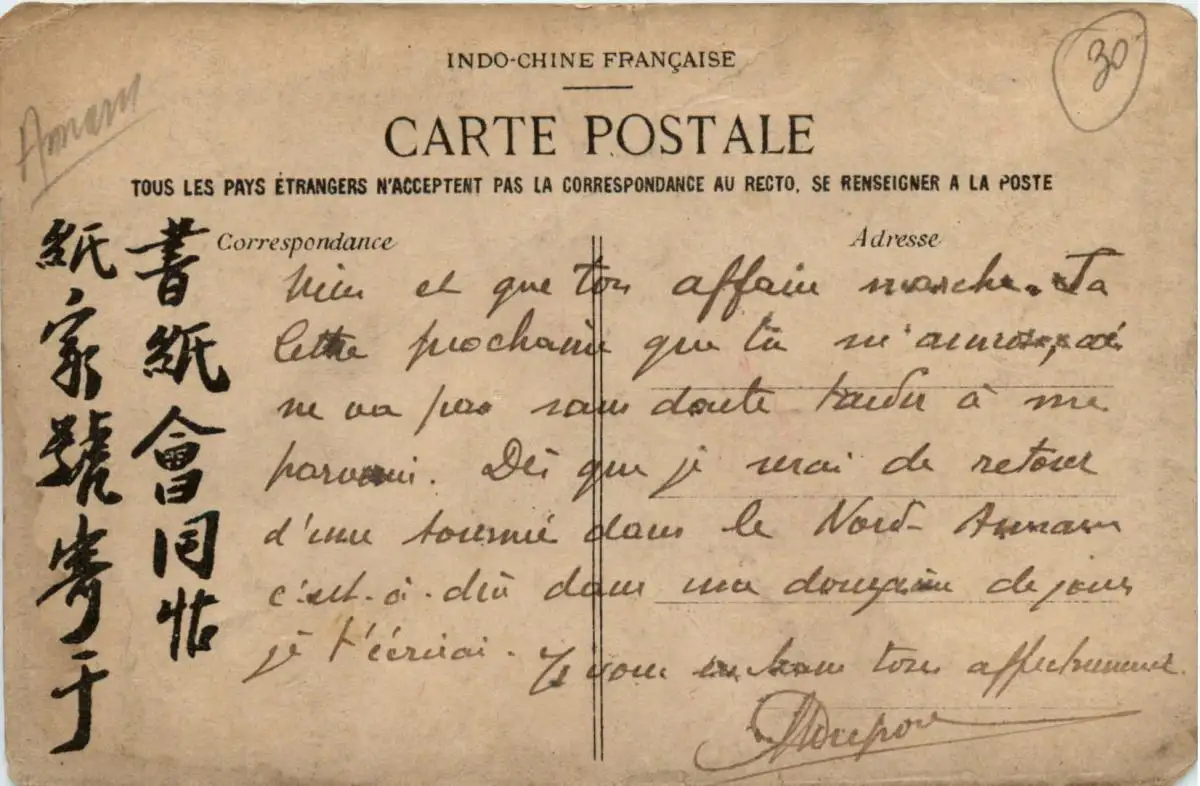 INDO-CHINE FRANÇAISE
30
CARTE POSTALE
Annam
TOUS LES PAYS ÉTRANGERS N'ACCEPTENT PAS LA CORRESPONDANCE AU RECTO, SE RENSEIGNER A LA POSTE
Correspondance
Adresse
書紙會同帖
紙家號寄于
et que ton affaire marche. Ta
lettre prochaine que tu m'
ne va pas sans doute tarder à me
parvenir. Dès que je serai de retour
d'une tournée dans le Nord-Annam
c'est-à-dire dans une de jours
je t'écrirai. Je vous embrasse tous affectueusement